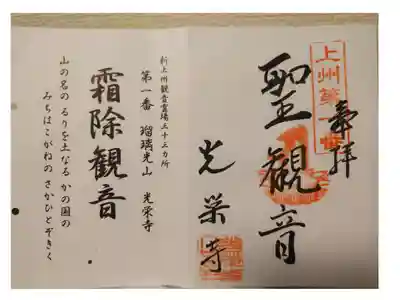 上州第一番
奉拝
聖観音
光栄寺
新上州観音霊場三十三カ所
第一番 瑠璃光山 光栄寺
霜除観音
山の名の るりを土なる かの国の
みちはこがねの さかひとぞきく